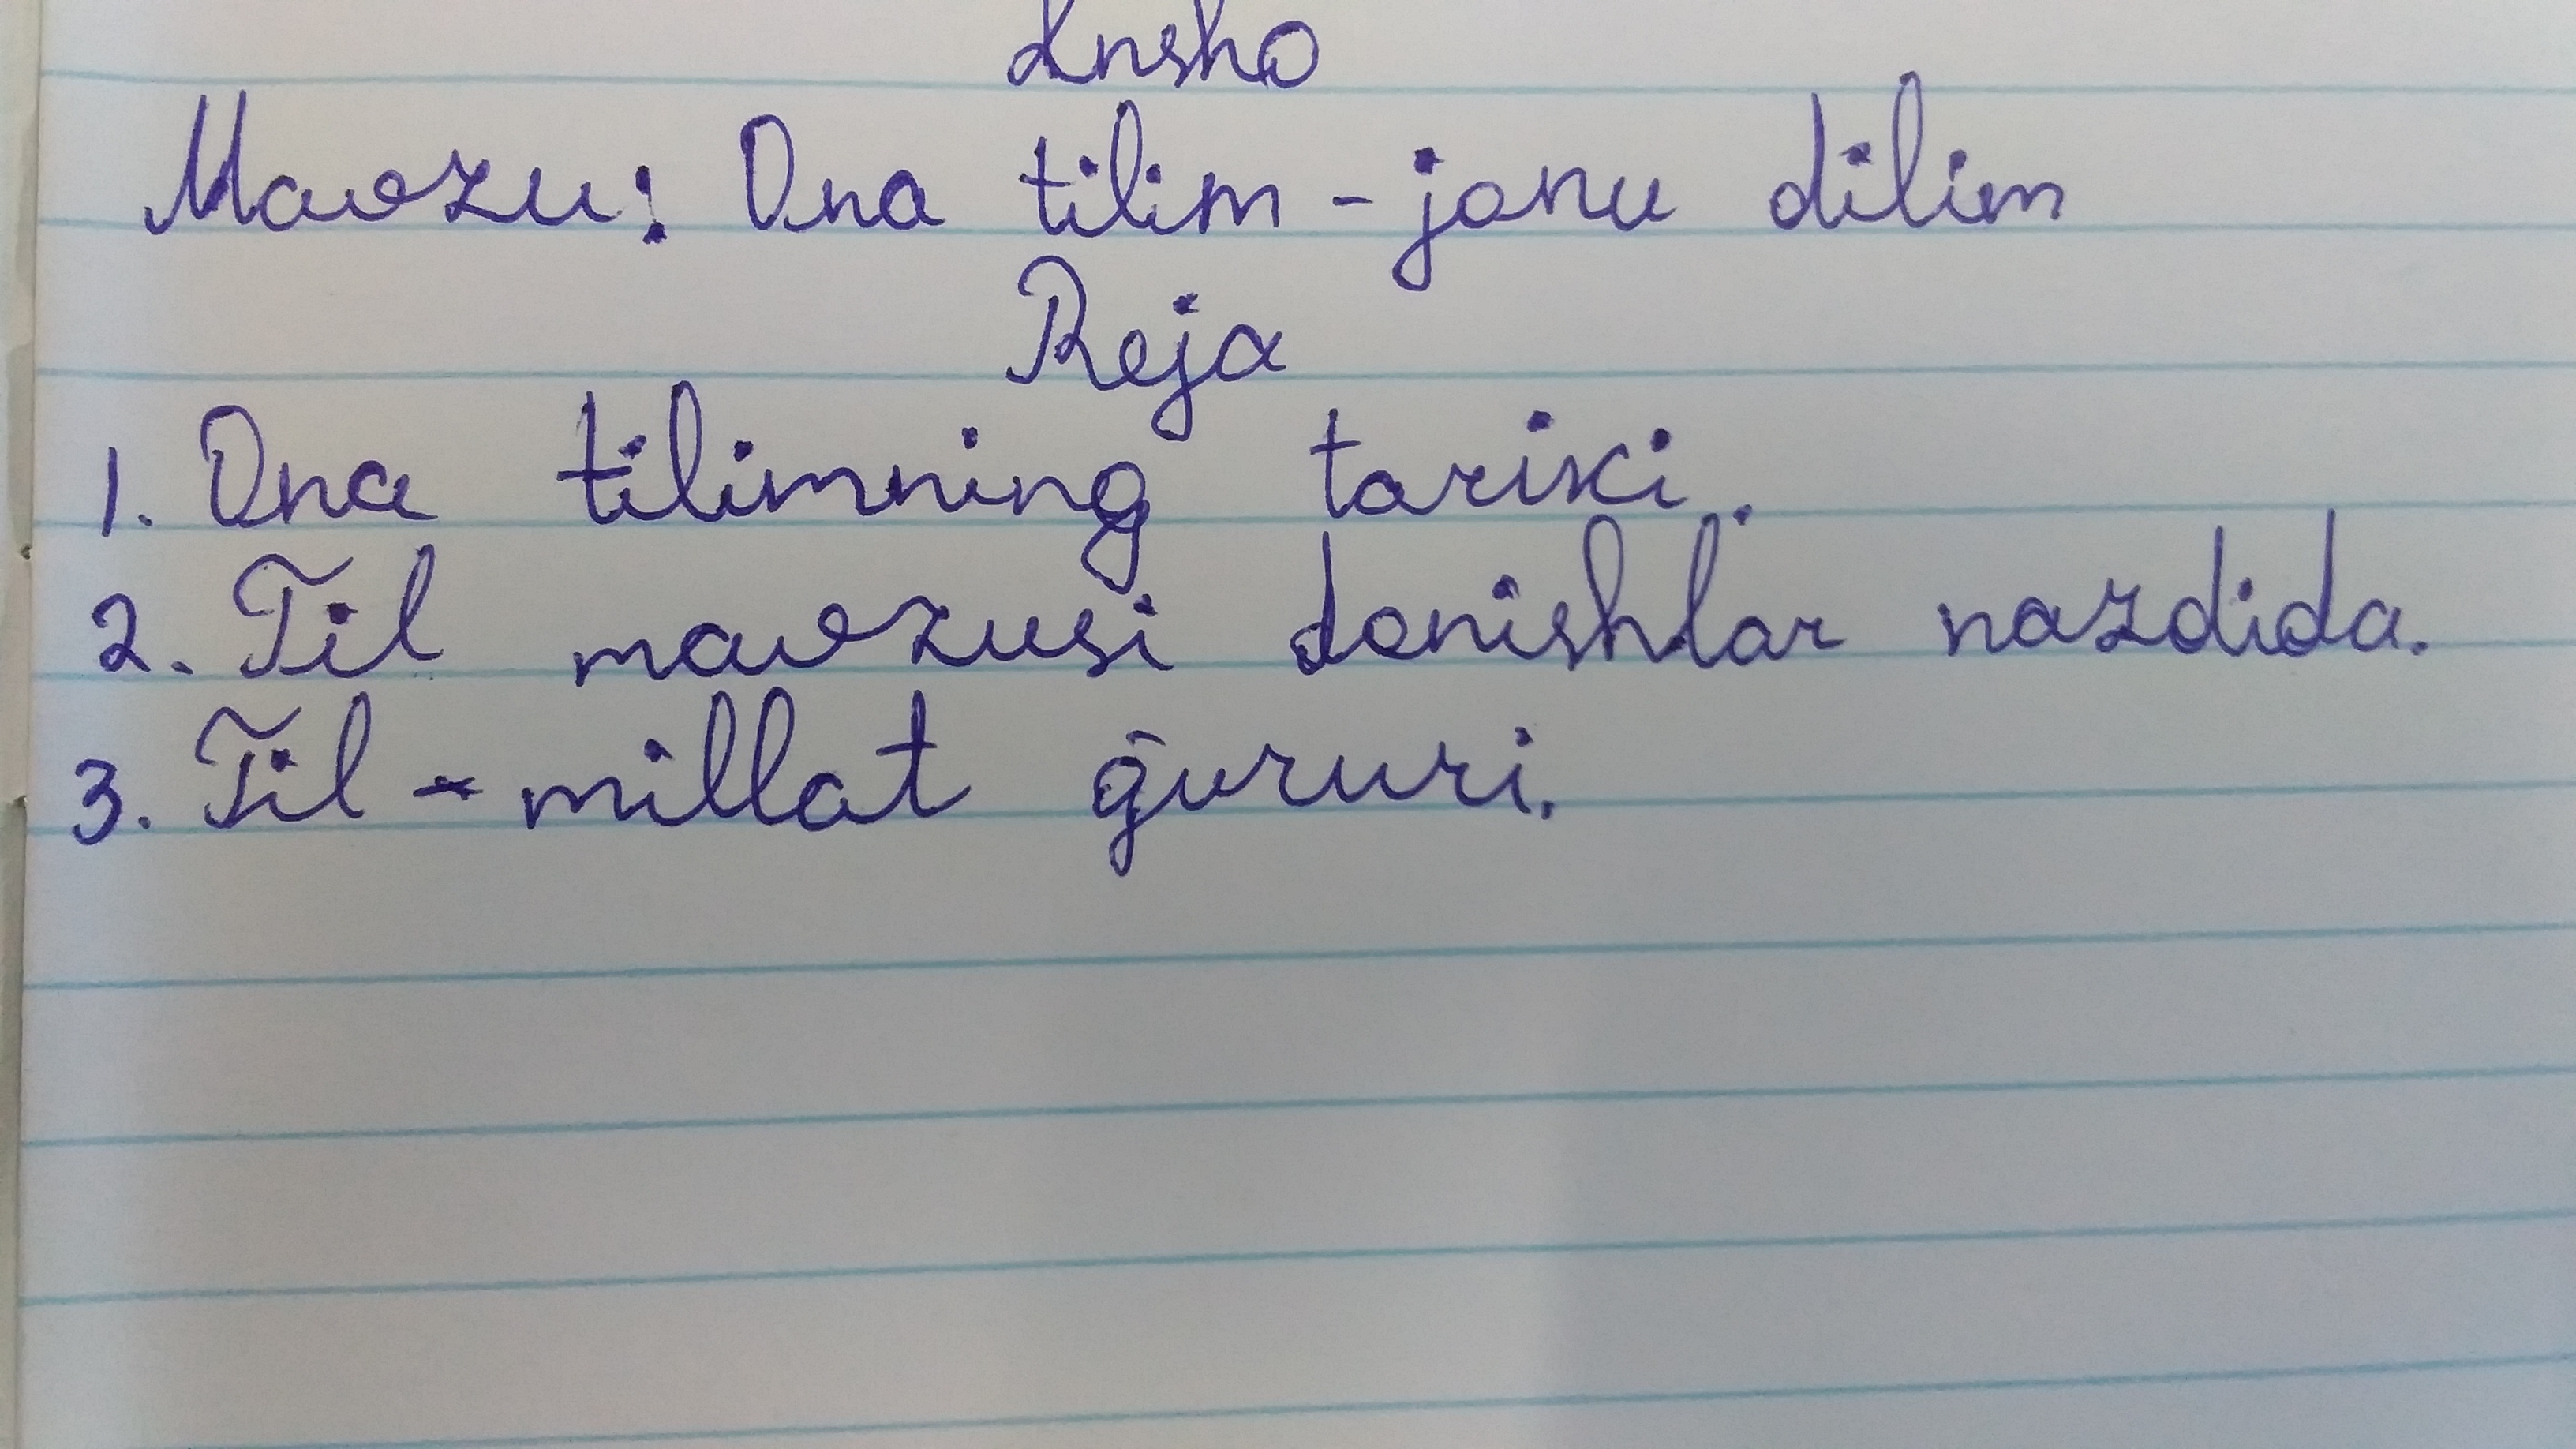 Insho
Mavzu: Ona tilim - jonu dilim
Reja
1. Ona tilimning tarixi.
2. Til mavzusi donishlar nazdida.
3. Til - millat g'ururi.